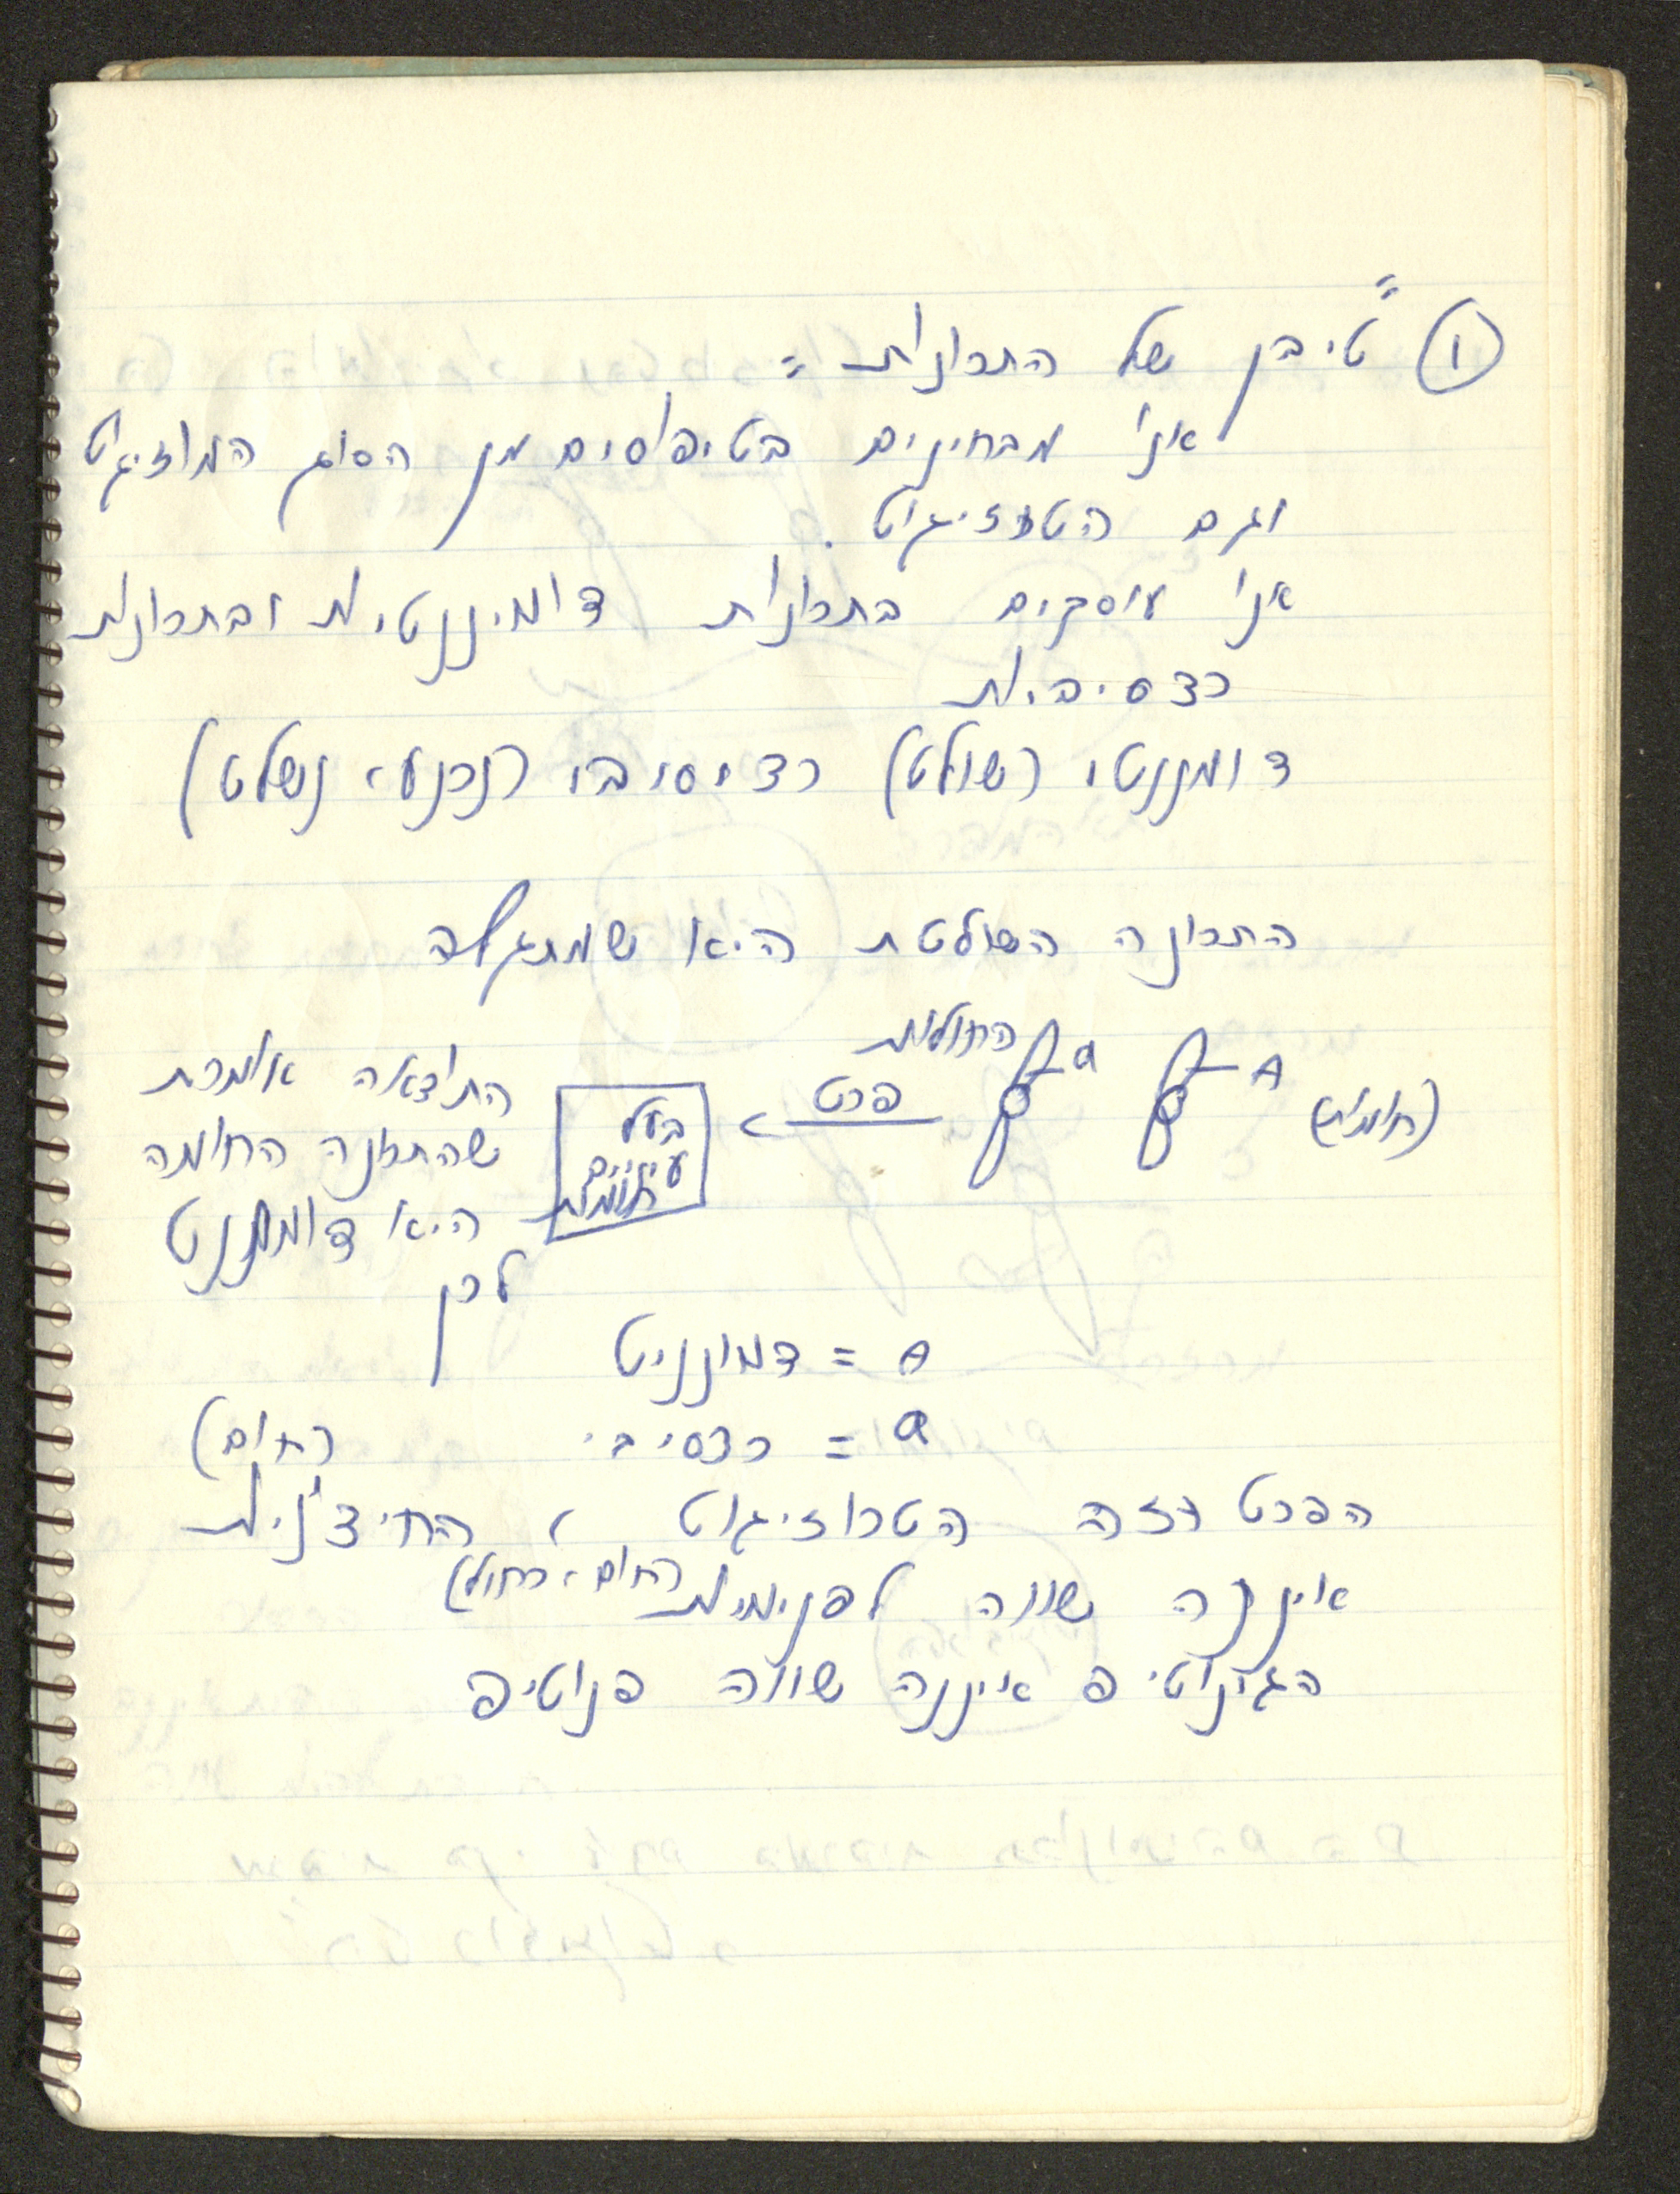 ① "טיבן של התכונות"
אנו מבחינים בטיפוסים מן הסוג המוזיגוט
וגם הטרוזיגוט.
אנו עוסקים בתכונות דומיננטיות ובתכונות
רצסיביות
דומננטי (שולט) רציסיבי (נכנע, נשלט)
התכונה השולטת היא שמתגלה
(חומות) A a החולות
פרט
בעל
עיניים
חומות
התוצאה אומרת
שהתכונה החומה
היא דומננט
לכן
A = דמוננייט
a = רצסיבי (חום)
הפרט הזה הטרוזיגוט, החיצ'ניות
איננה שווה לפנימיות (חום, כחול)
הגינוטיפ איננה שווה פנוטיפ